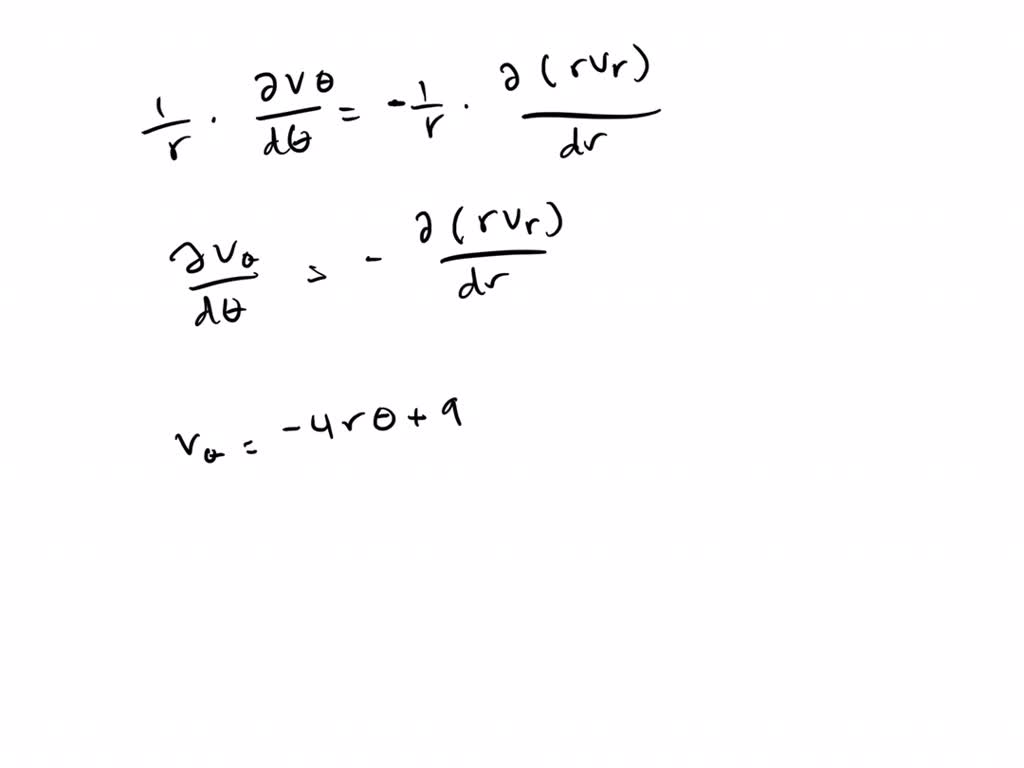 1/r · ∂vθ/dθ = -1/r · ∂(rvr)/dr
∂vθ/dθ > - ∂(rvr)/dr
vθ = -4rθ + 9